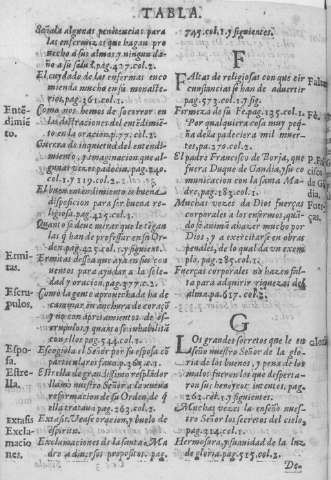 TABLA.
Señala algunas penitencias para
las enfermizas que hagan pro
uecho a sus almas, y ningun da-
ño a su salud, pag.427.col.2.
El cuydado de las enfermas enco
mienda mucho en su monaste-
rio, pag.361.col.1.
Entẽdi
miẽto.
Como nos hemos de socorrer en
las distracciones del entendimiẽ
to en la oracion.p.77.col.2.
Guerra de inquietud del entendi
miento, y imaginacion que al-
gunas vezes padecia, pag.240.
col.1.y 219.col.2.
El buen entendimiento es buena
disposicion para ser buena re-
ligiosa.pag.425.col.1.
Quanto se deue mirar que le tẽgan
las q̃ han de professar en su Or-
den.pag.425.col.1.y siguiente.
Ermi-
tas.
Ermitas dessea que aya en sus con
uentos para ayudar a la sole-
dad y oracion.pag.977.c.2.
Escru-
pulos.
Como la gente aprouechada ha de
caminar con anchura de coraçõ
y no con apretamientos de es-
crupulos, y quanto se inhabilitã
con ellos.pag.544.col.1.
Espo-
sa.
Escogiola el Señor por su esposa cõ
particulares fauores.p.268.c.1.
Estre-
lla.
Estrella de grandissimo resplãdor
llamò nuestro Señor a la nueua
reformacion de su Orden, de q̃
ella trataua pag.263.col.2.
extasis
Extasi. Vease oracion, y buelo de
espiritu.
Excla
macio
nes.
Exclamaciones de la santa Ma-
dre a diuersos propositos. pag.
745.col.1.y siguientes.
F
Faltas de religiosas con que cir
cunstancias se han de aduertir
pag.573.col.1.y sig.
Firmeza de su Fe.pag.135.col.1.
Fè.
Por qualquiera cosa muy peq̃-
ña della padeciera mil muer-
tes, pa.270.col.2.
El padre Francisco de Borja, que
fuera Duque de Gandia, y su co
municacion con la santa Ma-
dre, pag.183.col.2.
Muchas vezes da Dios fuerças
corporales a los enfermos, quãdo
se animã a hazer mucho por
Dios, y a exercitarse en obras
penales, de lo qual da un exem
plo, pag.285.col.1.
Fuerças corporales no hazen fal-
ta para adquirir riquezas del
alma.pa.617.col.2.
G
Los grandes secretos que le en
señò nuestro Señor de la glo-
ria de los buenos, y pena de los
malos: fueron los que desperta-
ron sus heroycos intentos, pag.
262.col.1.y siguientes.
Muchas vezes la enseño nues-
tro Señor los secretos del cielo,
pag.214.col.1.
Hermosura, y suauidad de la luz
de gloria.pag.515.col.2.
De-